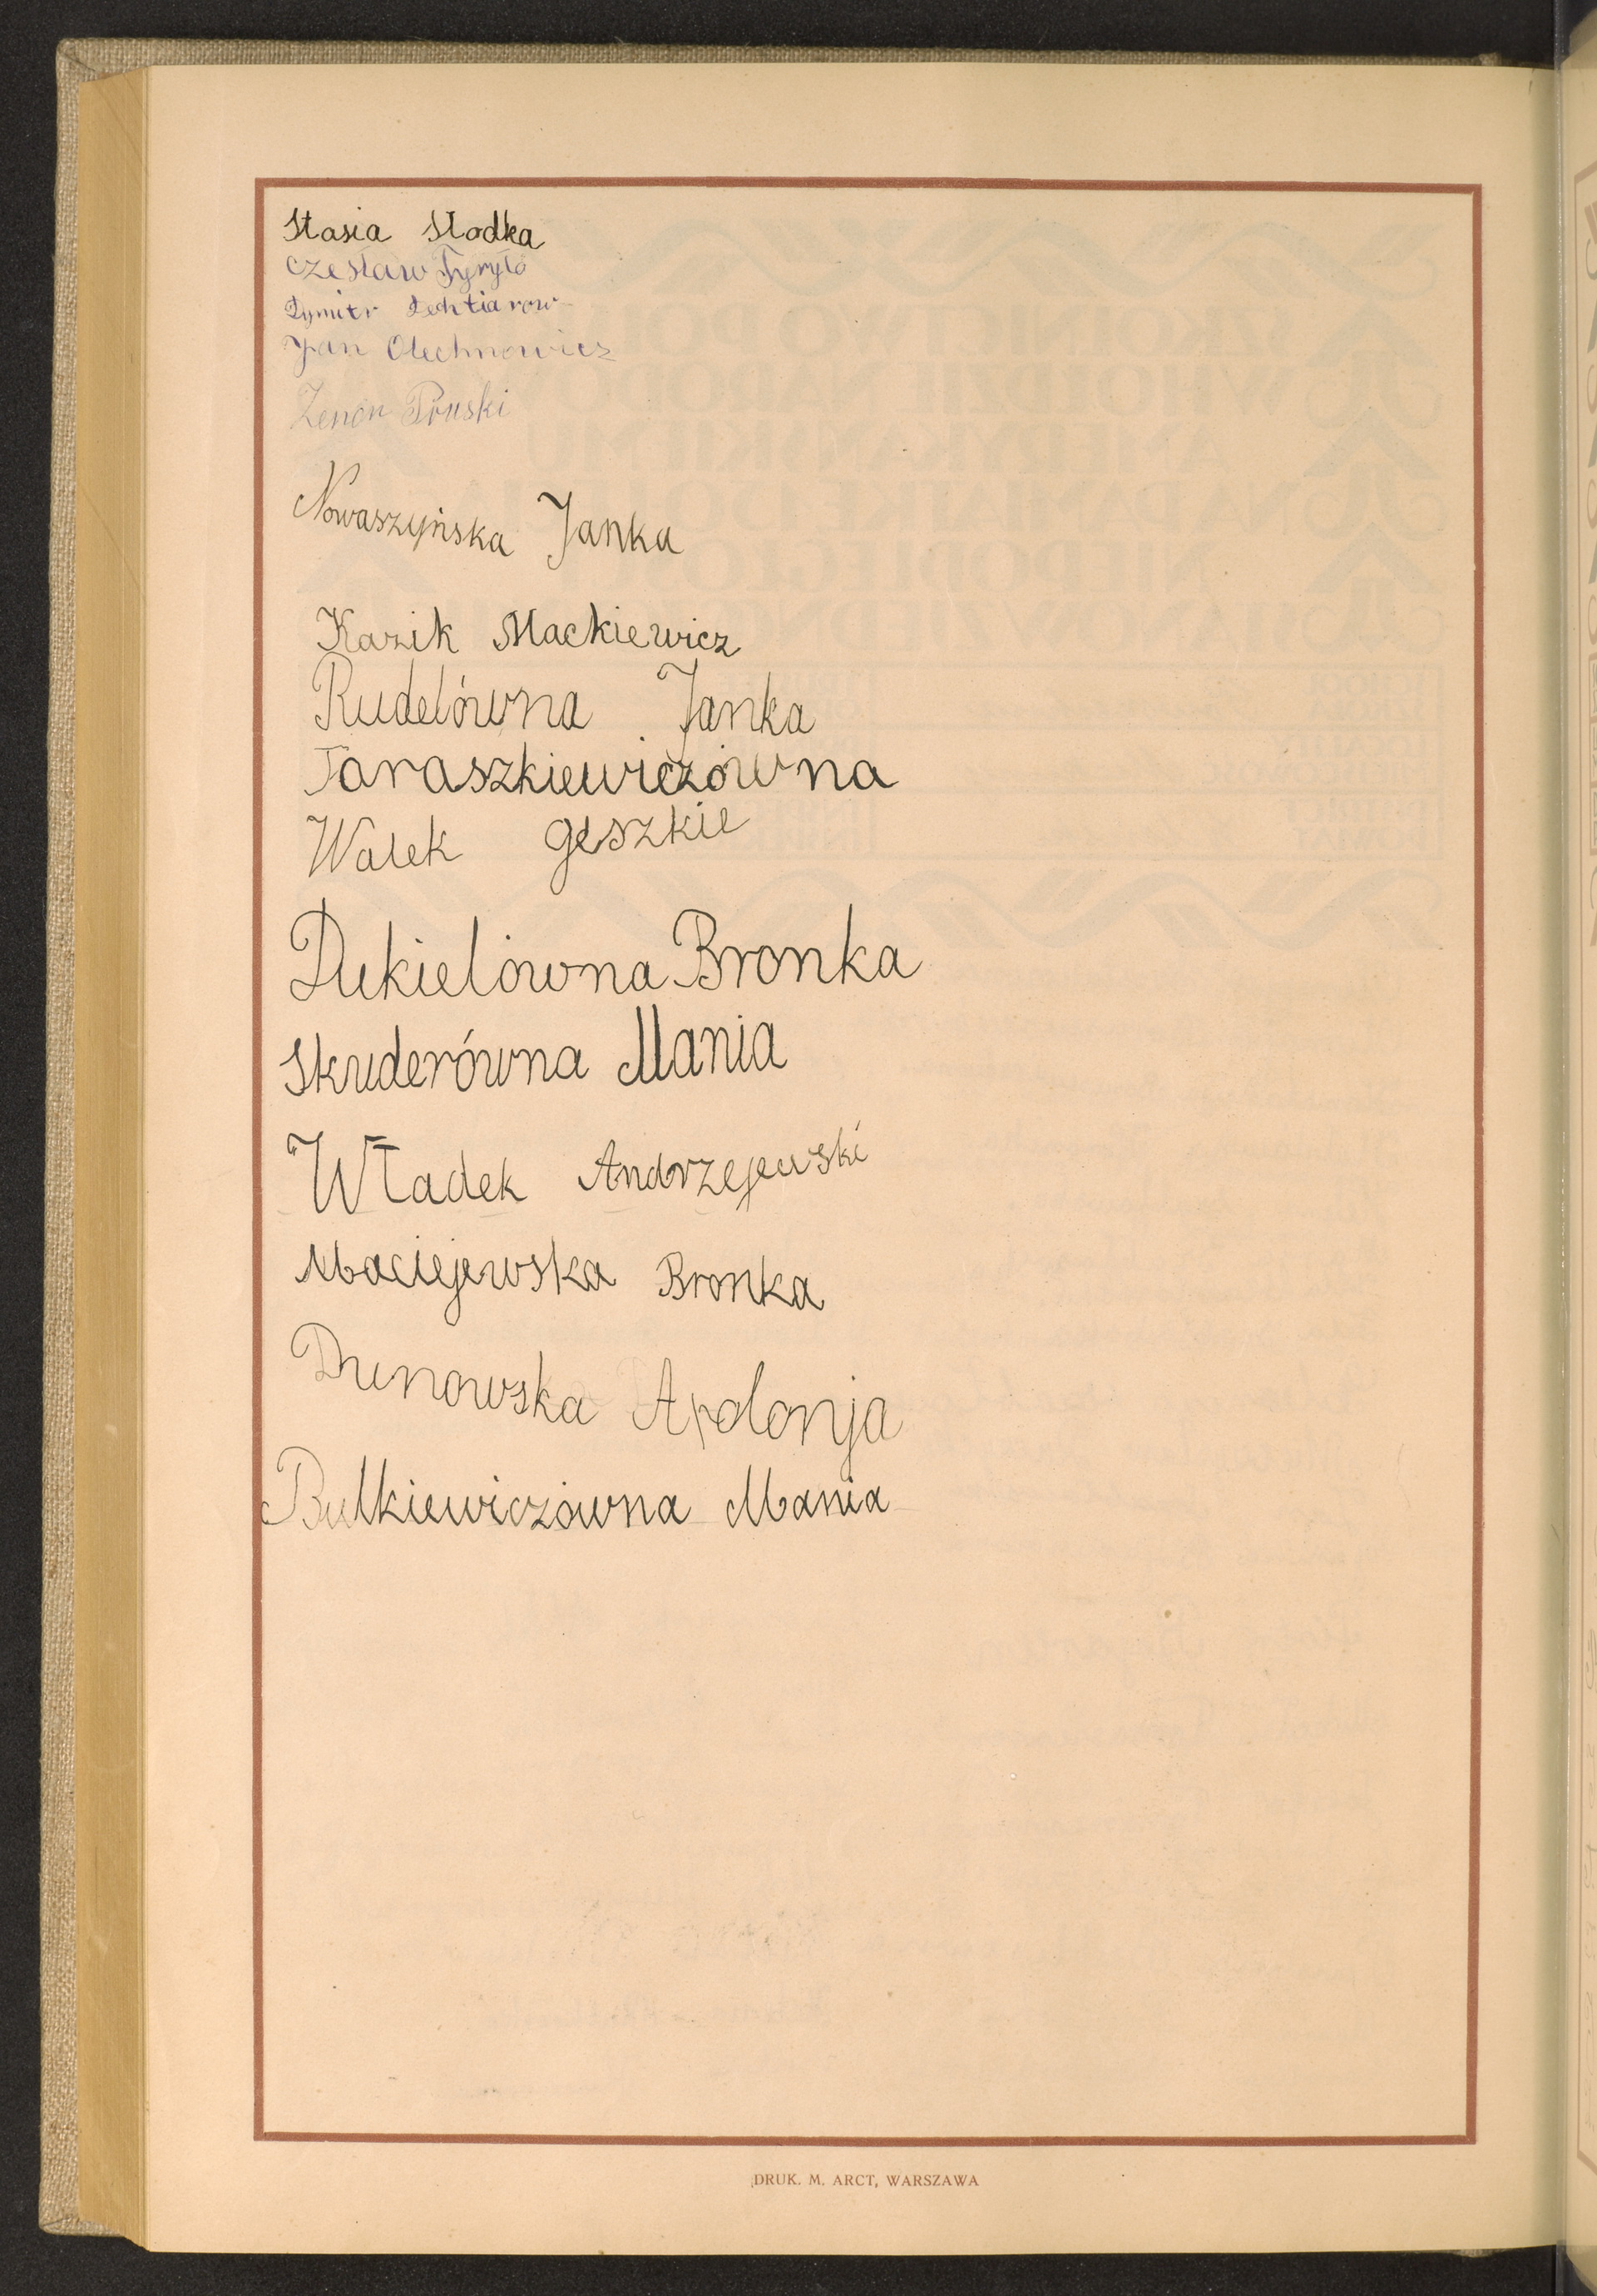 Stasia Słodka
Czesław Tyryło
Dymitr Dechtiarow
Jan Olechnowicz
Zenon Pruski
Nowaszyńska Janka
Kazik Mackiewicz
Rudelówna Janka
Taraszkiewiczówna
Walek Geszkie
Dukielówna Bronka
Skuderówna Mania
Władek Andrzejewski
Maciejewska Bronka
Dunowska Apolonja
Bulkiewiczówna Mania
DRUK. M. ARCT, WARSZAWA